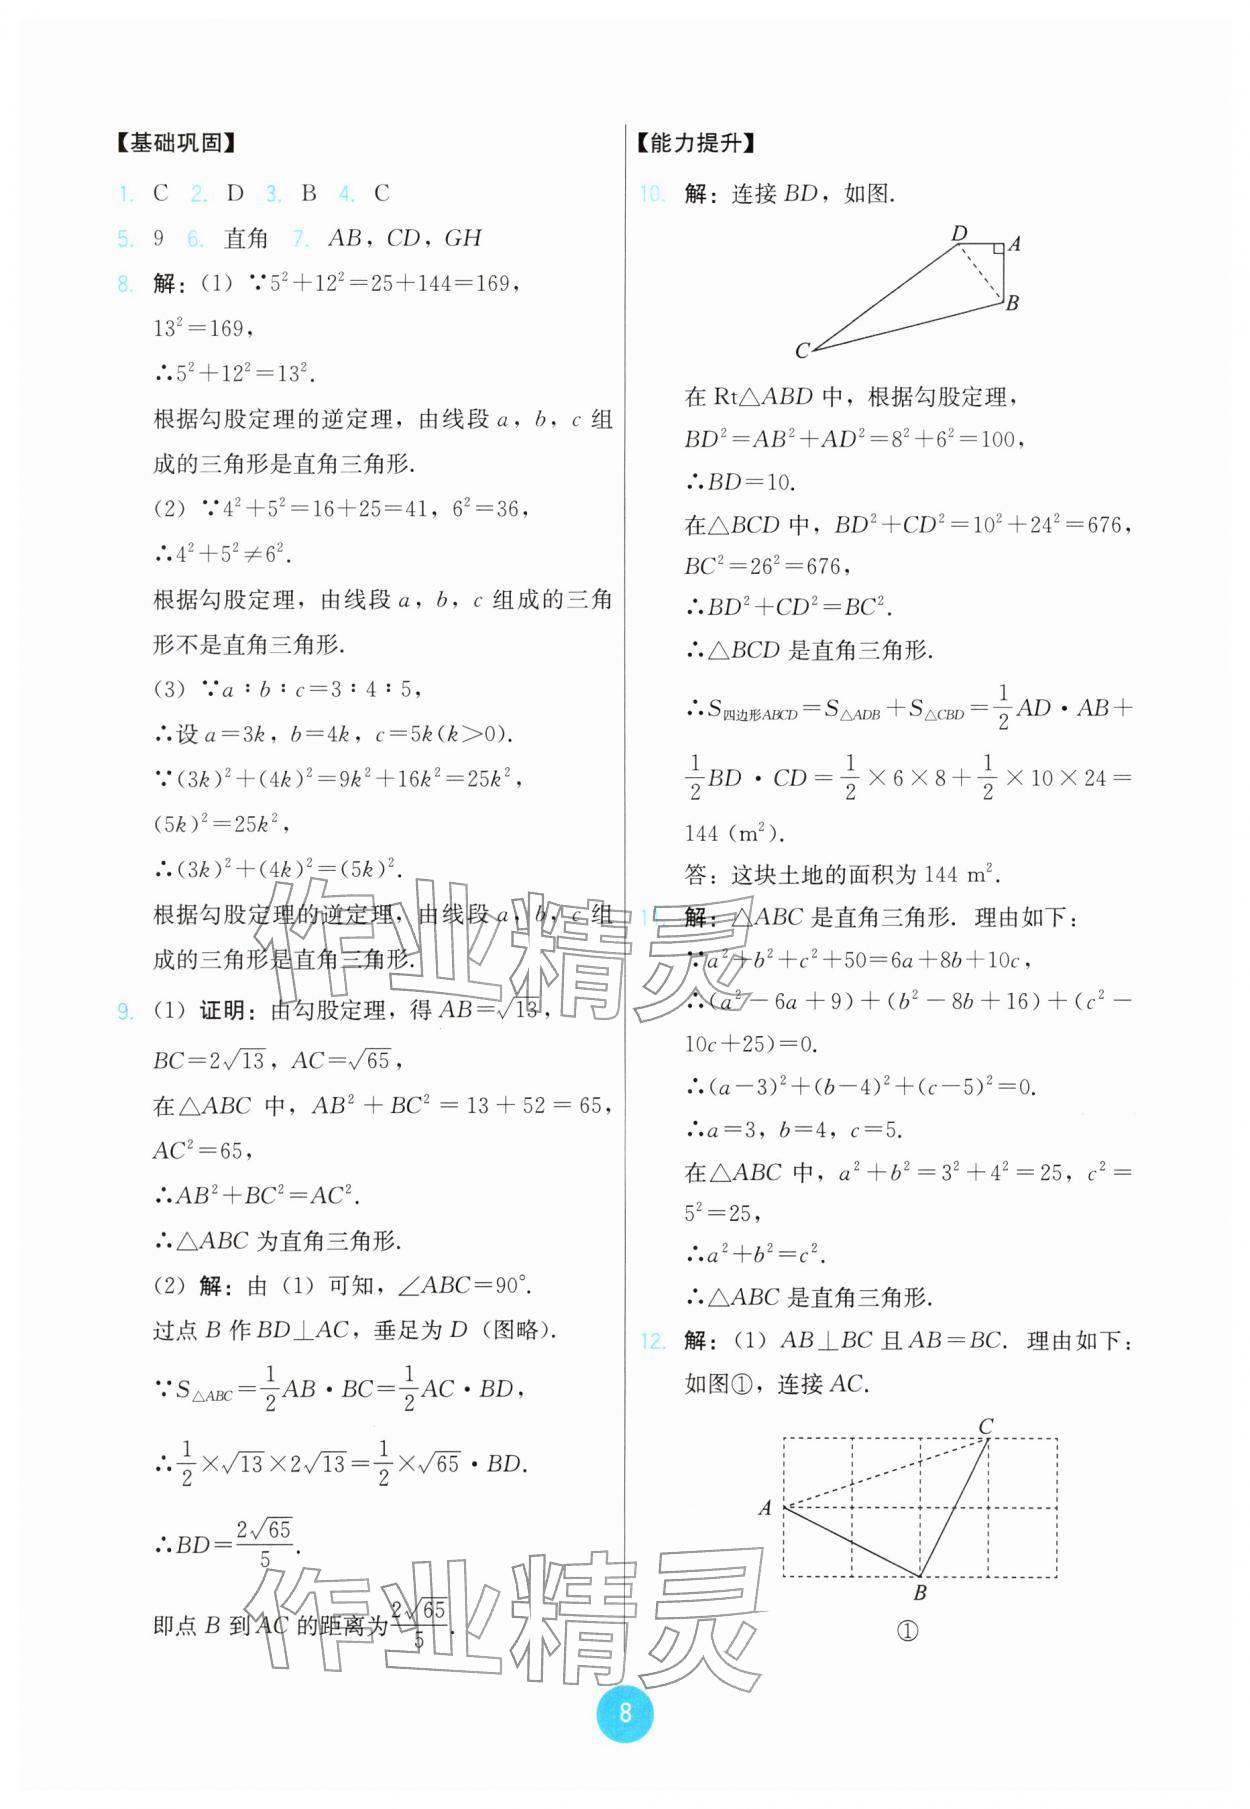 【基础巩固】
1. C 2. D 3. B 4. C
5. 9 6. 直角 7. AB，CD，GH
8. 解：（1）∵5²+12²=25+144=169，
13²=169，
∴5²+12²=13².
根据勾股定理的逆定理，由线段 a，b，c 组
成的三角形是直角三角形.
（2）∵4²+5²=16+25=41，6²=36，
∴4²+5²≠6².
根据勾股定理，由线段 a，b，c 组成的三角
形不是直角三角形.
（3）∵a∶b∶c=3∶4∶5，
∴设 a=3k，b=4k，c=5k(k>0).
∵(3k)²+(4k)²=9k²+16k²=25k²，
(5k)²=25k²，
∴(3k)²+(4k)²=(5k)².
根据勾股定理的逆定理，由线段 a，b，c 组
成的三角形是直角三角形.
9. （1）证明：由勾股定理，得 AB=√13，
BC=2√13，AC=√65，
在△ABC 中，AB²+BC²=13+52=65，
AC²=65，
∴AB²+BC²=AC².
∴△ABC 为直角三角形.
（2）解：由（1）可知，∠ABC=90°.
过点 B 作 BD⊥AC，垂足为 D（图略）.
∵S△ABC=1/2 AB·BC=1/2 AC·BD，
∴1/2×√13×2√13=1/2×√65·BD.
∴BD=2√65/5.
即点 B 到 AC 的距离为 2√65/5.
【能力提升】
10. 解：连接 BD，如图.
D
A
B
C
在 Rt△ABD 中，根据勾股定理，
BD²=AB²+AD²=8²+6²=100，
∴BD=10.
在△BCD 中，BD²+CD²=10²+24²=676，
BC²=26²=676，
∴BD²+CD²=BC².
∴△BCD 是直角三角形.
∴S四边形ABCD=S△ADB+S△CBD=1/2 AD·AB+
1/2 BD·CD=1/2×6×8+1/2×10×24=
144（m²）.
答：这块土地的面积为 144 m².
11. 解：△ABC 是直角三角形. 理由如下：
∵a²+b²+c²+50=6a+8b+10c，
∴(a²-6a+9)+(b²-8b+16)+(c²-
10c+25)=0.
∴(a-3)²+(b-4)²+(c-5)²=0.
∴a=3，b=4，c=5.
在△ABC 中，a²+b²=3²+4²=25，c²=
5²=25，
∴a²+b²=c².
∴△ABC 是直角三角形.
12. 解：（1）AB⊥BC 且 AB=BC. 理由如下：
如图①，连接 AC.
C
A
B
①
作业精灵
作业精灵
8